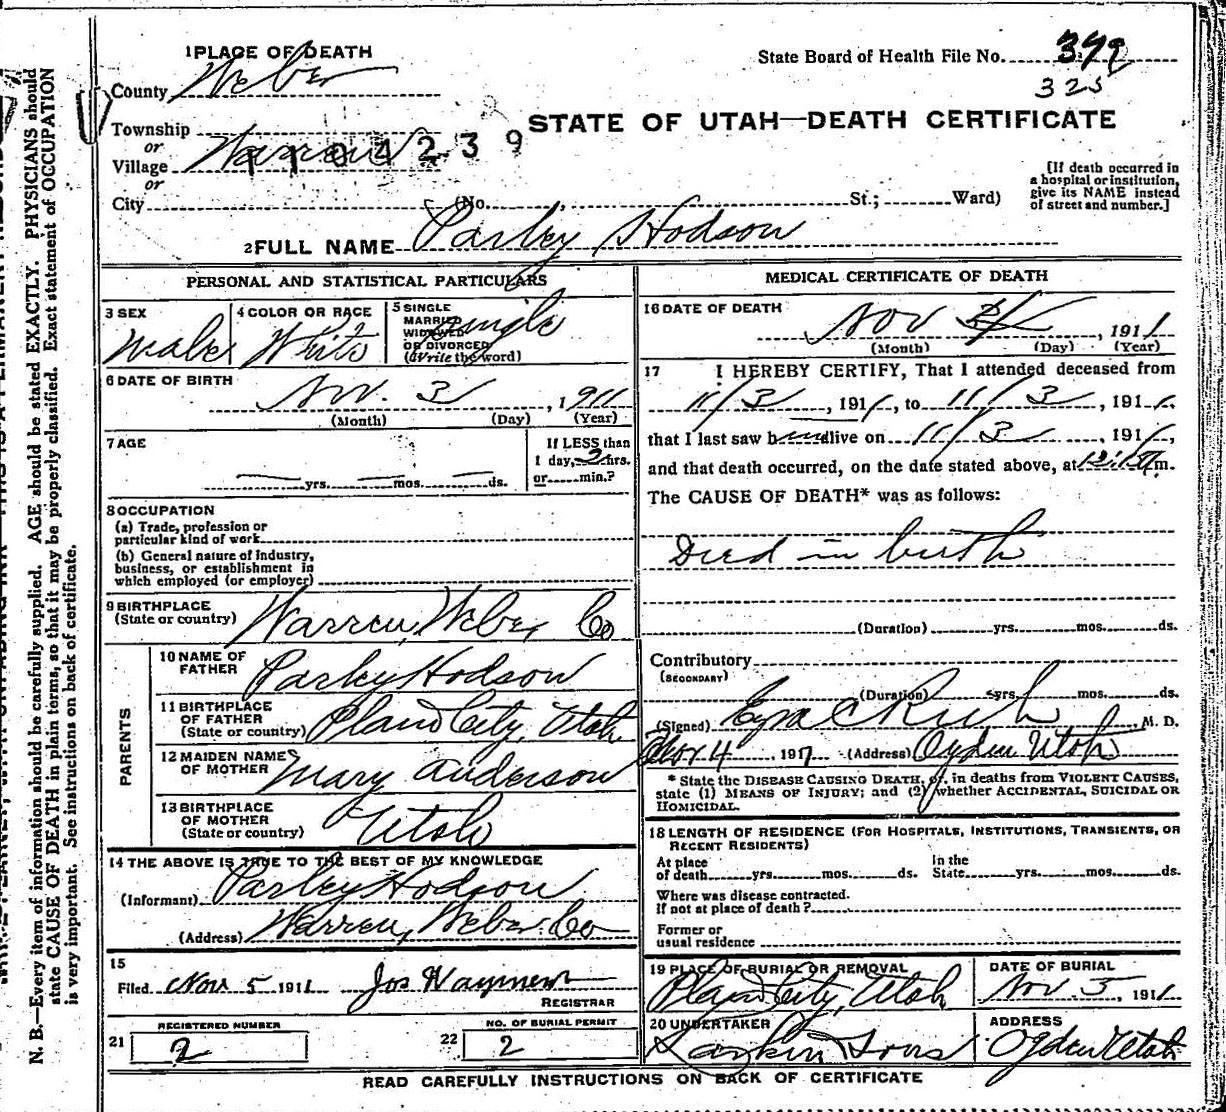 1 PLACE OF DEATH
State Board of Health File No. 379
325
County Weber
STATE OF UTAH—DEATH CERTIFICATE
Township
or
Village Warren
1104239
or
City (No. , St.; Ward)
[If death occurred in
a hospital or institution,
give its NAME instead
of street and number.]
2 FULL NAME Parley Hodson
PERSONAL AND STATISTICAL PARTICULARS
3 SEX
Male
4 COLOR OR RACE
White
5 SINGLE
MARRIED
WIDOWED
OR DIVORCED
(Write the word)
Single
6 DATE OF BIRTH
Nov. 3, 1911
(Month) (Day) (Year)
7 AGE
yrs. mos. ds.
If LESS than
1 day, 2 hrs.
or min.?
8 OCCUPATION
(a) Trade, profession or
particular kind of work
(b) General nature of industry,
business, or establishment in
which employed (or employer)
9 BIRTHPLACE
(State or country)
Warren, Weber Co
PARENTS
10 NAME OF
FATHER
Parley Hodson
11 BIRTHPLACE
OF FATHER
(State or country)
Plain City, Utah
12 MAIDEN NAME
OF MOTHER
Mary Anderson
13 BIRTHPLACE
OF MOTHER
(State or country)
Utah
14 THE ABOVE IS TRUE TO THE BEST OF MY KNOWLEDGE
(Informant) Parley Hodson
(Address) Warren, Weber Co
15
Filed Nov 5 1911 Jos Wayment
REGISTRAR
21 REGISTERED NUMBER
2
22 NO. OF BURIAL PERMIT
2
MEDICAL CERTIFICATE OF DEATH
16 DATE OF DEATH
Nov , 1911
(Month) (Day) (Year)
17 I HEREBY CERTIFY, That I attended deceased from
11/3, 1911, to 11/3, 1911,
that I last saw h alive on 11/3, 1911,
and that death occurred, on the date stated above, at m.
The CAUSE OF DEATH* was as follows:
Died in birth
(Duration) yrs. mos. ds.
Contributory
(SECONDARY)
(Duration) yrs. mos. ds.
(Signed) Ezra C Rich, M. D.
Nov 4 191 (Address) Ogden Utah
* State the DISEASE CAUSING DEATH, or, in deaths from VIOLENT CAUSES,
state (1) MEANS OF INJURY; and (2) whether ACCIDENTAL, SUICIDAL OR
HOMICIDAL.
18 LENGTH OF RESIDENCE (FOR HOSPITALS, INSTITUTIONS, TRANSIENTS, OR
RECENT RESIDENTS)
At place
of death yrs. mos. ds.
In the
State yrs. mos. ds.
Where was disease contracted.
If not at place of death?
Former or
usual residence
19 PLACE OF BURIAL OR REMOVAL
Plain City, Utah
DATE OF BURIAL
Nov. 5, 1911
20 UNDERTAKER
Larkin Sons
ADDRESS
Ogden Utah
READ CAREFULLY INSTRUCTIONS ON BACK OF CERTIFICATE
N. B.—Every item of information should be carefully supplied. AGE should be stated EXACTLY. PHYSICIANS should
state CAUSE OF DEATH in plain terms, so that it may be properly classified. Exact statement of OCCUPATION
is very important. See instructions on back of certificate.